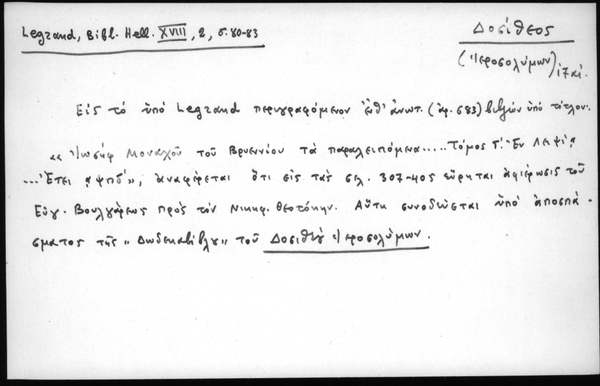 Legrand, Bibl. Hell. XVIII, 2, σ. 80-83
Δοσίθεος
(Ἱεροσολύμων) 17 αἰ.
Εἰς τὸ ὑπὸ Legrand περιγραφόμενον ἔνθ' ἀνωτ. (ἀρ. 683) βιβλίον ὑπὸ τίτλον.
"Ἰωσὴφ Μοναχοῦ τοῦ Βρυεννίου τὰ παραλειπόμενα..... Τόμος Γ'. Ἐν Λειψίᾳ
... Ἔτει ͵αψπδ'", ἀναφέρεται ὅτι εἰς τὰς σελ. 307-405 εὕρηται ἀφιέρωσις τοῦ
Εὐγ. Βουλγάρεως πρὸς τὸν Νικηφ. Θεοτόκην. Αὕτη συνοδεύεται ὑπὸ ἀποσπά-
σματος τῆς "Δωδεκαβίβλου" τοῦ Δοσιθέου Ἱεροσολύμων.